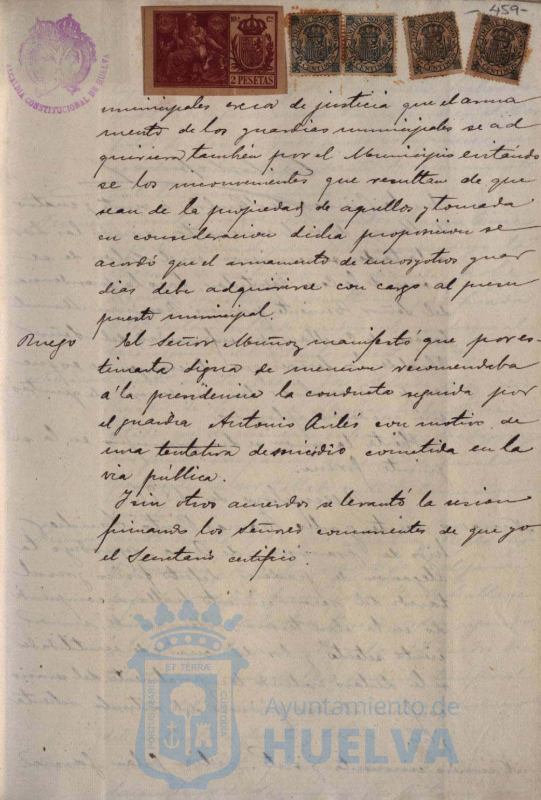 -459-
ALCALDIA CONSTITUCIONAL DE HUELVA
2 PESETAS
municipales crera de justicia que el arma
mento de los guardias municipales se ad
quiriera tambien por el Municipio evitando
se los inconvenientes que resultan de que
sean de la propiedad de aquellos y tomada
en consideracion dicha proposicion se
acordó que el armamento de unos y otros guar
dias debe adquirirse con cargo al presu
puesto municipal.
Ruego
El Señor Muñoz manifestó que por es-
timarla digna de mencion recomendaba
á la presidencia la conducta seguida por
el guardia Antonio Avilés con motivo de
una tentativa de suicidio cometida en la
via pública.
I sin otros acuerdos se levantó la sesion
firmando los Señores concurrentes de que yo
el Secretario certifico.
ET TERRÆ
PORTUS MARIS
CUSTODIA
Ayuntamiento de
HUELVA